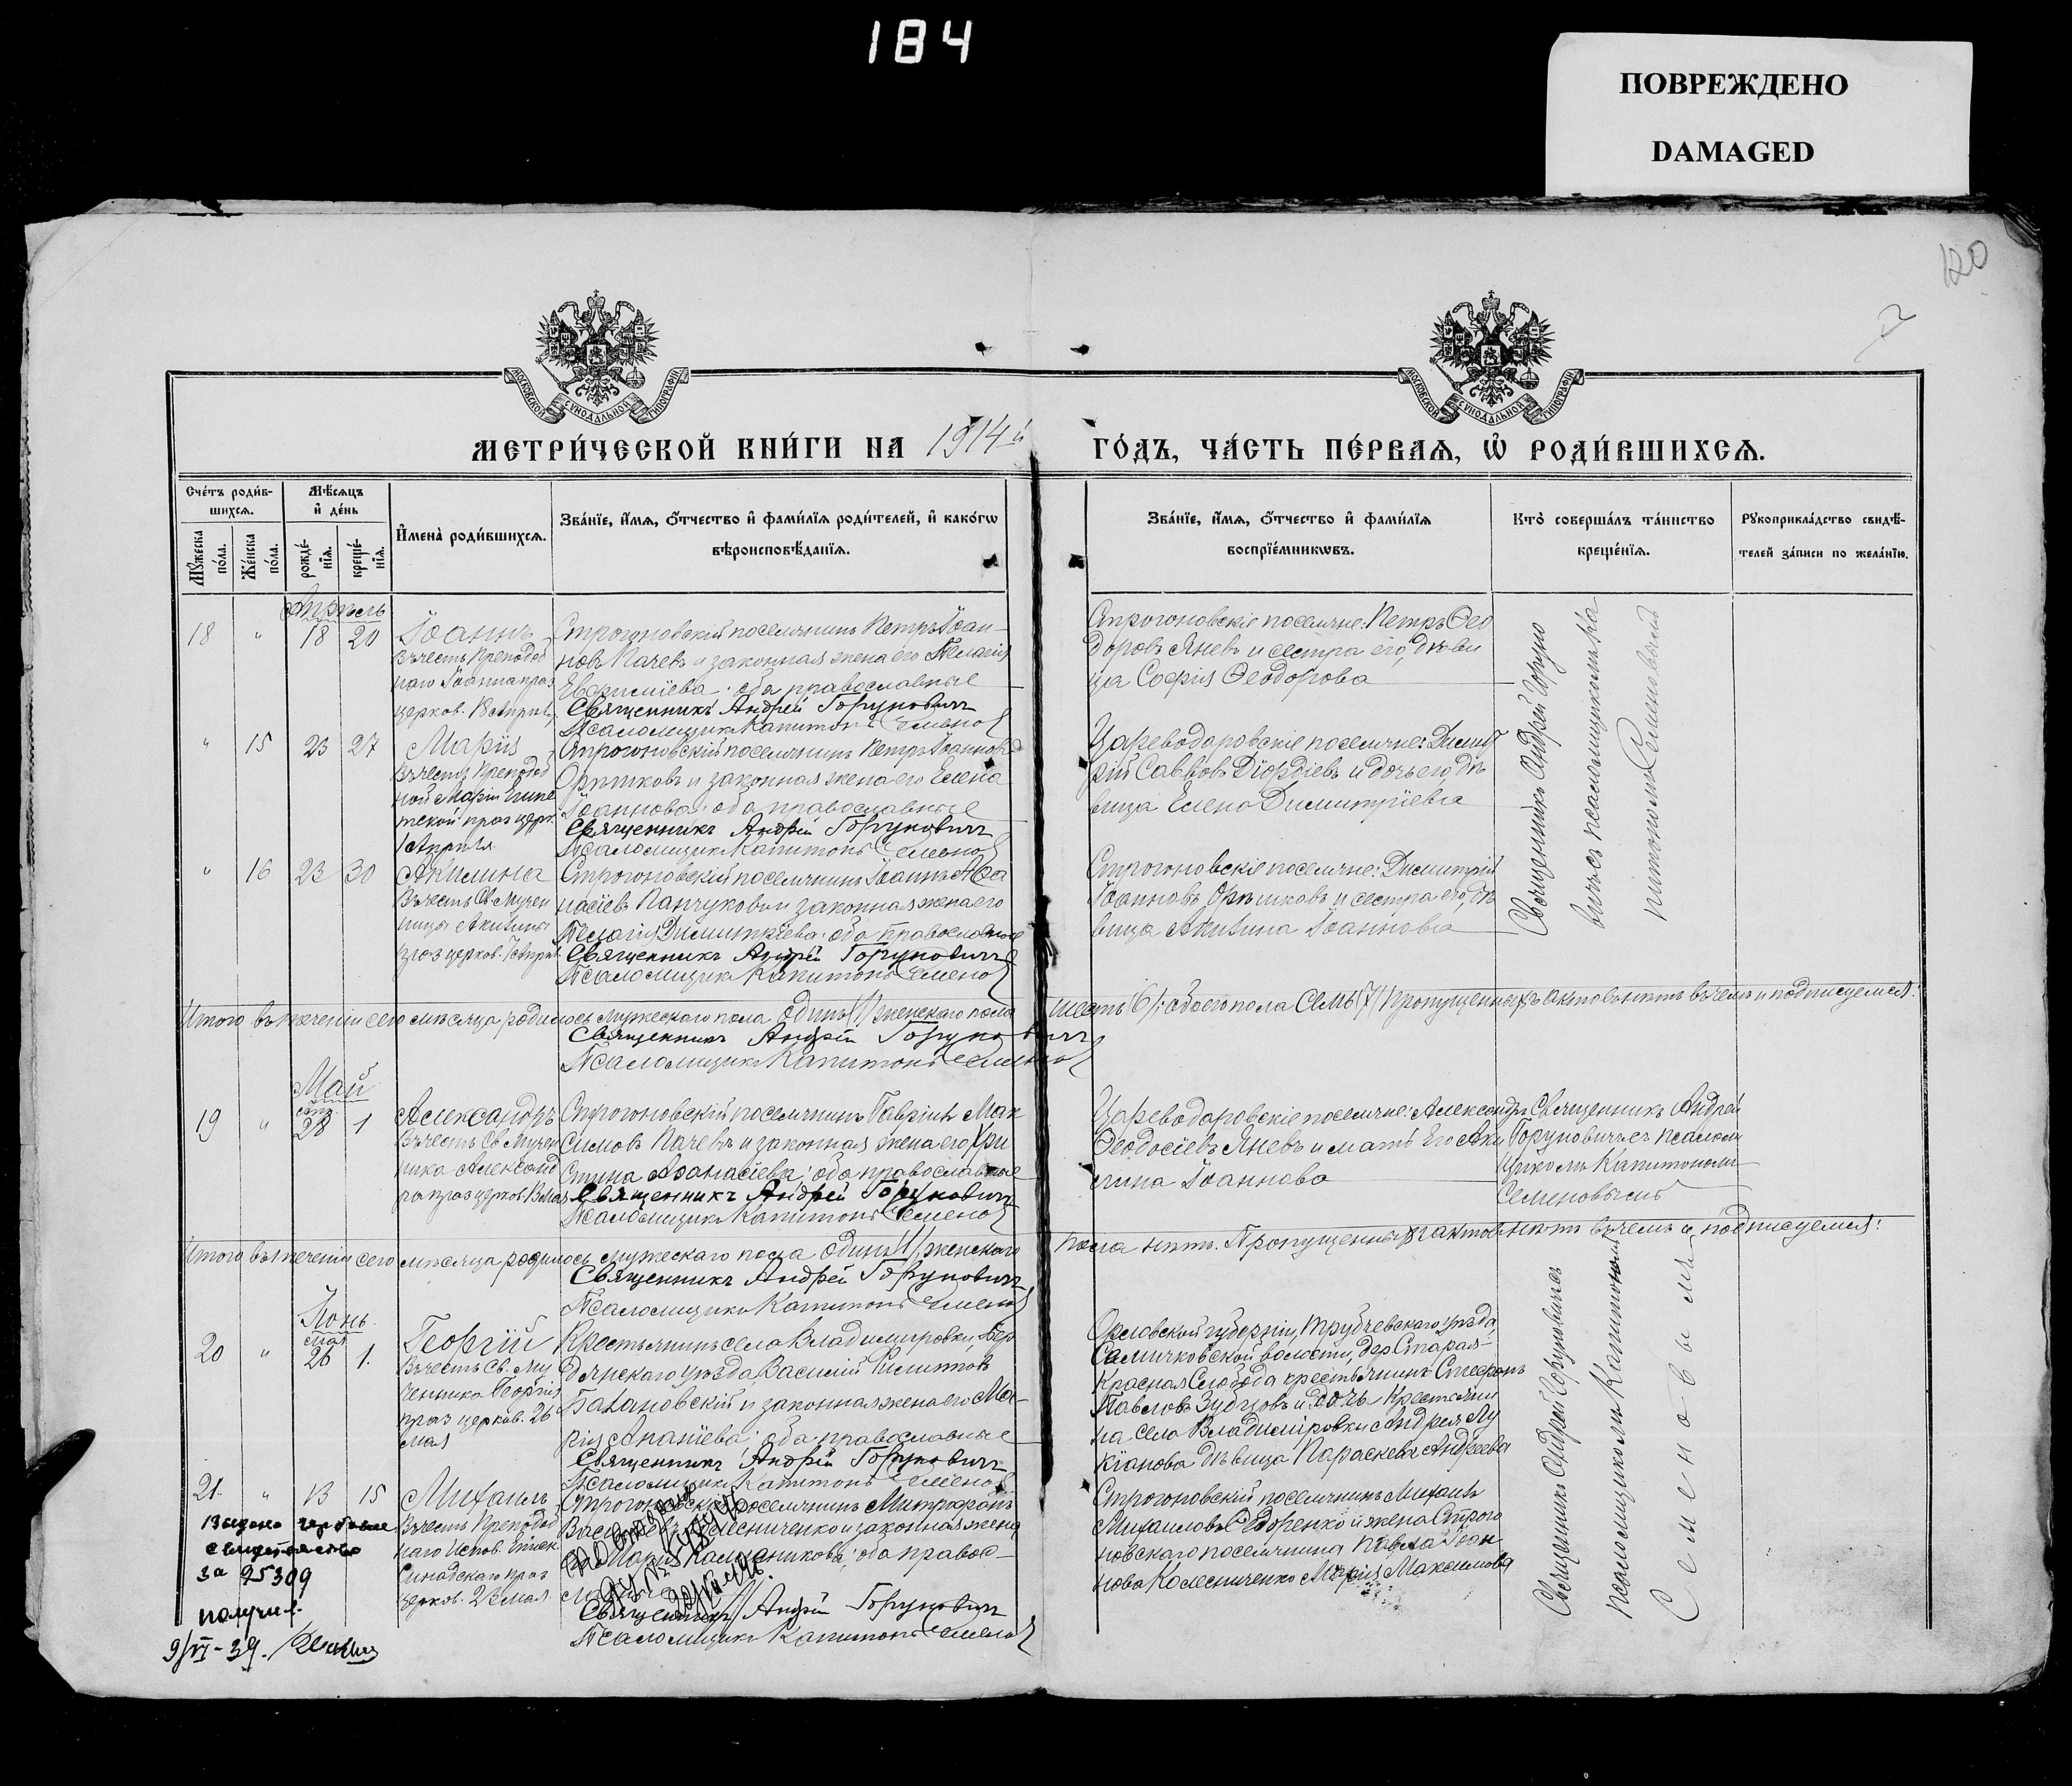 184
ПОВРЕЖДЕНО
DAMAGED
120
МОСКОВСКОЙ СѴНОДАЛЬНОЙ ТИПОГРАФІИ
МОСКОВСКОЙ СѴНОДАЛЬНОЙ ТИПОГРАФІИ
МЕТРИ́ЧЕСКОЙ КНИ́ГИ НА 1914й ГО́ДЪ, ЧА́СТЬ ПЕ́РВАѦ, Ѡ҆ РОДИ́ВШИХСѦ.
Сче́тъ роди́в-
шихсѧ.
Мѣ́сѧцъ
и҆ де́нь
Мꙋ́жеска
по́ла.
Же́нска
по́ла.
рожде́-
нїѧ.
креще́-
нїѧ.
И҆мена̀ роди́вшихсѧ.
Зва́нїе, и҆́мѧ, ѻ҆́тчество и҆ фами́лїѧ роди́телей, и҆ како́гѡ
вѣроисповѣ́данїѧ.
Зва́нїе, и҆́мѧ, ѻ҆́тчество и҆ фами́лїѧ
воспрїе́мникѡвъ.
Кто̀ соверша́лъ та́инство
креще́нїѧ.
Рꙋкоприкла́дство свидѣ́-
телей за́писи по жела́нїю.
Апрѣль
18 " 18 20 Іоаннъ
Въ честь Преподоб
наго Іоанна праз
церков. 18 Апрѣл.
Строгоновскій поселянинъ Петръ Іоан-
новъ Пачевъ и законная жена его Пелагія
Евфиміева; оба православные
Священникъ Андрей Горуновичъ
Псаломщикъ Капитонъ Семенов
Строгоновскіе поселяне: Петръ Ѳео
доровъ Яневъ и сестра его, дѣви
ца Софія Ѳеодорова
" 15 23 27 Марія
Въ честь Преподоб
ной Маріи Египе
тской праз церк.
1 Апрѣля
Строгоновскій поселянинъ Петръ Іоанновъ
Орѣшковъ и законная жена его Елена
Іоаннова; оба православные
Священникъ Андрей Горуновичъ
Псаломщикъ Капитонъ Семенов
Цареводаровскіе поселяне: Димит
рій Саввовъ Діордіевъ и дочь его, дѣ
вица Елена Димитріева
" 16 23 30 Акилина
Въ честь Св. Мучен
ницы Акилины
праз церков. 7 Апрѣл.
Строгоновскій поселянинъ Іоаннъ Аѳа
насіевъ Панчуковъ и законная жена его
Пелагія Димитріева; оба православные
Священникъ Андрей Горуновичъ
Псаломщикъ Капитонъ Семенов
Строгоновскіе поселяне: Димитрій
Іоанновъ Орѣшковъ и сестра его, дѣ
вица Акилина Іоаннова
Священникъ Андрей Горуно
вичъ съ псаломщикомъ Ка
питономъ Семеновымъ
Итого въ теченіи сего мѣсяца родилось мужескаго пола Одинъ (1) женскаго пола шесть (6); обоего пола Семь (7) Пропущенныхъ актовъ нѣтъ въ чемъ и подписуемся:
Священникъ Андрей Горуновичъ
Псаломщикъ Капитонъ Семенов
Май
19 " апр. 28 1 Александръ
Въ честь Св. Мучен
ника Александ
ра праз церков. 13 мая
Строгоновскій поселянинъ Гавріилъ Мак
симовъ Пачевъ и законная жена его Хри
стина Аѳанасіева; оба православные
Священникъ Андрей Горуновичъ
Псаломщикъ Капитонъ Семенов
Цареводаровскіе поселяне: Александръ
Ѳеодосіевъ Яневъ и мать его Аки
лина Іоаннова
Священникъ Андрей
Горуновичъ съ псалом
щикомъ Капитономъ
Семеновымъ
Итого въ теченіи сего мѣсяца родилось мужескаго пола Одинъ (1), женскаго пола нѣтъ. Пропущенныхъ актовъ нѣтъ въ чемъ и подписуемся:
Священникъ Андрей Горуновичъ
Псаломщикъ Капитонъ Семенов
Іюнь.
20 " мая 26 1. Георгій
Въ честь Св. Му
ченника Георгія
праз церков. 26
мая
Крестьянинъ села Владимировки, Бер
дянскаго уѣзда Василій Филиппов
Балановскій и законная жена его Ма-
рія Ананіева; оба православные
Священникъ Андрей Горуновичъ
Псаломщикъ Капитонъ Семенов
Орловской губерніи, Трубчевскаго уѣзда,
Семичковской волости, дер. Старая-
Красная Слобода крестьянинъ Стефанъ
Павловъ Зубцовъ и дочь крестьяни
на села Владиміровки Андрея Лу
кіанова дѣвица Параскева Андреева
21. " 13 15 Михаилъ
Въ честь Преподоб
наго Испов. Еписк.
Синадскаго праз
церков. 23 мая.
Строгоновскій поселянинъ Митрофанъ
Колесниченко и законная жена
Марія оба правос-
Священникъ Андрей Горуновичъ
Псаломщикъ Капитонъ Семенов
Строгоновскій поселянинъ Михаилъ
Михаиловъ Ѳедоренко и жена Строго
новскаго поселянина Павла Іоан
нова Колесниченко Марія Максимова
Священникъ Андрей Горуновичъ съ
псаломщикомъ Капитономъ
Семеновымъ
Выдано гербовое
свидетельство
за 95309
получил
9/VI-39.